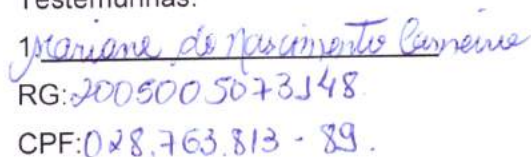 Testemunhas:
1 Mariane do Nascimento Carneiro
RG:2005005073148
CPF:028.763.813-89.